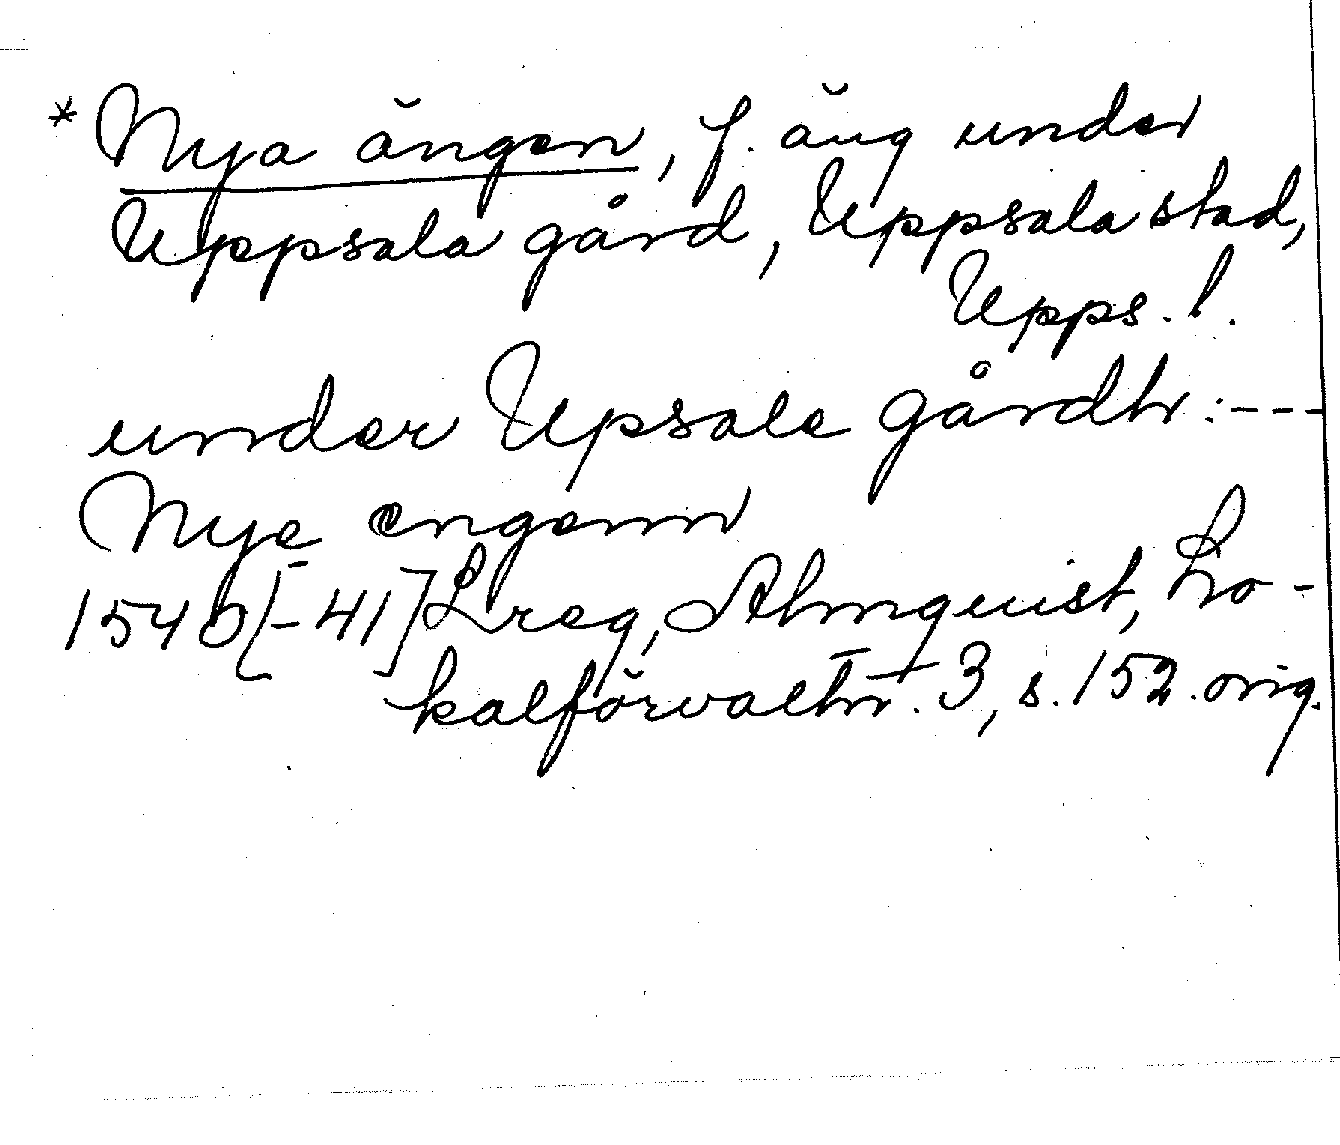 * Nya ängen, f. äng under
Uppsala gård, Uppsala stad,
Upps. l.
under Upsale gårdh:---
Nye engenn
1540[-41] Lreg, Almquist, Lo-
kalförvaltn. 3, s. 152. orig.